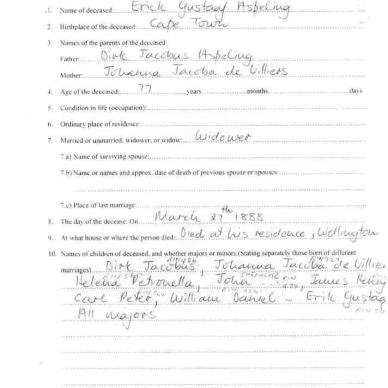 1. Name of deceased: Erick Gustaaf Aspeling
2. Birthplace of the deceased: Cape Town
3. Names of the parents of the deceased:
Father: Dirk Jacobus Aspeling
Mother: Johanna Jacoba de Villiers
4. Age of the deceased: 77 years months days
5. Condition in life (occupation):
6. Ordinary place of residence:
7. Married or unmarried, widower, or widow: Widower
7.a) Name of surviving spouse:
7.b) Name or names and approx. date of death of previous spouse or spouses:
7.c) Place of last marriage:
8. The day of the decease: On March 27th 1888
9. At what house or where the person died: Died at his residence, Wellington
10. Names of children of deceased, and whether majors or minors. (Stating separately those born of different
marriages) Dirk Jacobus, Johanna Jacoba de Villie
Helena Petronella, John, James Henry
Carl Peter, William Daniel - Erik Gustaf
All majors